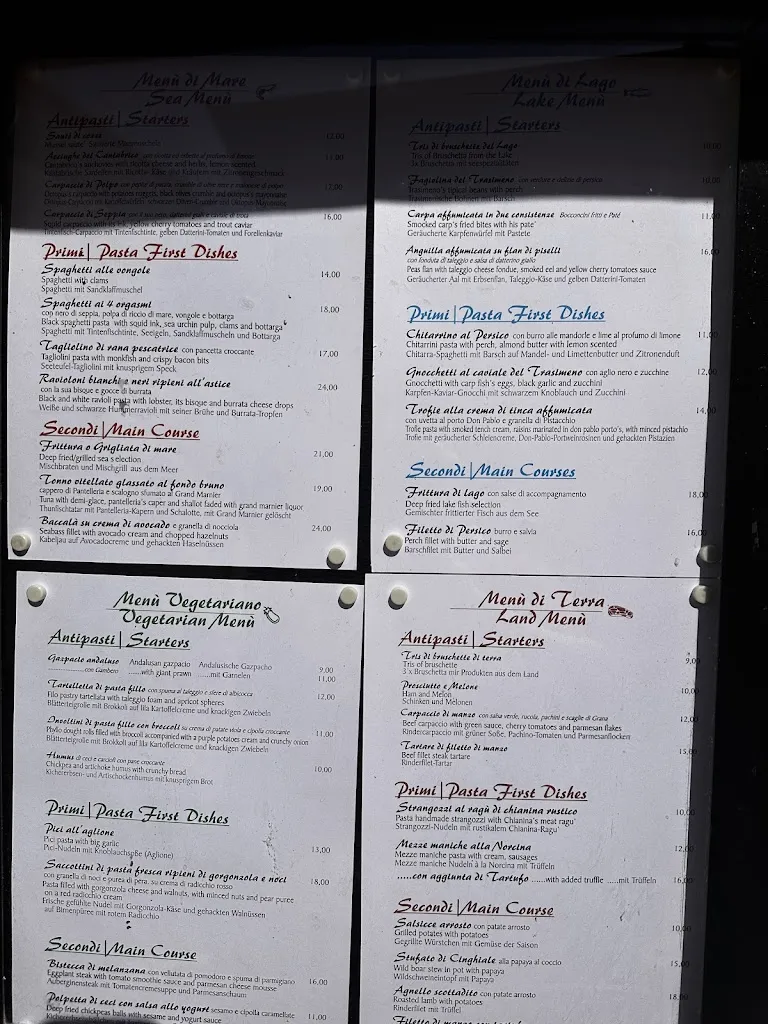 Menù di Mare
Sea Menù
Antipasti | Starters
Sauté di cozze 12,00
Acciughe del Cantabrico 11,00
Carpaccio di Polpo 12,00
Carpaccio di Seppia 16,00
Squid carpaccio with its ink, yellow cherry tomatoes and trout caviar
Tintenfisch-Carpaccio mit Tintenfischtinte, gelben Datterini-Tomaten und Forellenkaviar
Primi | Pasta First Dishes
Spaghetti alle vongole 14,00
Spaghetti with clams
Spaghetti mit Sandklaffmuschel
Spaghetti ai 4 orgasmi 18,00
con nero di seppia, polpa di riccio di mare, vongole e bottarga
Black spaghetti pasta with squid ink, sea urchin pulp, clams and bottarga
Spaghetti mit Tintenfischtinte, Seeigeln, Sandklaffmuscheln und Bottarga
Tagliolino di rana pescatrice con pancetta croccante 17,00
Tagliolini pasta with monkfish and crispy bacon bits
Seeteufel-Tagliolini mit knusprigem Speck
Ravioloni bianchi e neri ripieni all'astice 24,00
con la sua bisque e gocce di burrata
Black and white ravioli pasta with lobster, its bisque and burrata cheese drops
Weiße und schwarze Hummerravioli mit seiner Brühe und Burrata-Tropfen
Secondi | Main Course
Frittura o Grigliata di mare 21,00
Deep fried/grilled sea selection
Mischbraten und Mischgrill aus dem Meer
Tonno vitellato glassato al fondo bruno 19,00
cappero di Pantelleria e scalogno sfumato al Grand Marnier
Tuna with demi-glace, pantelleria's caper and shallot faded with grand marnier liquor
Thunfischtatar mit Pantelleria-Kapern und Schalotte, mit Grand Marnier gelöscht
Baccalà su crema di avocado e granella di nocciola 24,00
Seabass fillet with avocado cream and chopped hazelnuts
Kabeljau auf Avocadocreme und gehackten Haselnüssen
Menù di Lago
Lake Menù
Antipasti | Starters
Tris di bruschette del Lago 10,00
Tris of Bruschetta from the Lake
Fagiolina del Trasimeno 10,00
Trasimeno's typical beans with perch
Carpa affumicata in due consistenze Bocconcini fritti e Paté 11,00
Smoked carp's fried bites with his pate'
Geräucherte Karpfenwürfel mit Pastete
Anguilla affumicata su flan di piselli 16,00
con fonduta di taleggio e salsa di datterino giallo
Peas flan with taleggio cheese fondue, smoked eel and yellow cherry tomatoes sauce
Geräucherter Aal mit Erbsenflan, Taleggio-Käse und gelben Datterini-Tomaten
Primi | Pasta First Dishes
Chitarrino al Persico con burro alle mandorle e lime al profumo di limone 11,00
Chitarrini pasta with perch, almond butter with lemon scented
Chitarra-Spaghetti mit Barsch auf Mandel- und Limettenbutter und Zitronenduft
Gnocchetti al caviale del Trasimeno con aglio nero e zucchine 12,00
Gnocchetti with carp fish's eggs, black garlic and zucchini
Karpfen-Kaviar-Gnocchi mit schwarzem Knoblauch und Zucchini
Trofie alla crema di tinca affumicata 14,00
con uvetta al porto Don Pablo e granella di Pistacchio
Trofie pasta with smoked tench cream, raisins marinated in don pablo porto's, with minced pistachio
Trofie mit geräucherter Schleiencreme, Don-Pablo-Portweinrosinen und gehackten Pistazien
Secondi | Main Courses
Frittura di lago con salse di accompagnamento 18,00
Deep fried lake fish selection
Gemischter frittierter Fisch aus dem See
Filetto di Persico burro e salvia 16,00
Perch fillet with butter and sage
Barschfilet mit Butter und Salbei
Menù Vegetariano
Vegetarian Menù
Antipasti | Starters
Gazpacio andaluso Andalusan gazpacio Andalusische Gazpacho 9,00
......con Gambero ......with giant prawn ......mit Garnelen 11,00
Tartelletta di pasta fillo con spuma al taleggio e sfere di albicocca 12,00
Filo pastry tartellata with taleggio foam and apricot spheres
Blätterteigrolle mit Brokkoli auf lila Kartoffelcreme und knackigen Zwiebeln
Involtini di pasta fillo con broccoli su crema di patate viola e cipolla croccante 11,00
Phyllo dought rolls filled with broccoli accompanied with a purple potatoes cream and crunchy onion
Blätterteigrolle mit Brokkoli auf lila Kartoffelcreme und knackigen Zwiebeln
Humus di ceci e carciofi con pane croccante 10,00
Chickpea and artichoke humus with crunchy bread
Kichererbsen- und Artischockenhumus mit knusprigem Brot
Primi | Pasta First Dishes
Pici all'aglione 13,00
Pici pasta with big garlic
Pici-Nudeln mit Knoblauchsoße (Aglione)
Saccottini di pasta fresca ripieni di gorgonzola e noci 18,00
con granella di noci e purea di pera, su crema di radicchio rosso
Pasta filled with gorgonzola cheese and walnuts, with minced nuts and pear puree
on a red radicchio cream
Frische gefühlte Nudel mit Gorgonzola-Käse und gehackten Walnüssen
auf Birnenpüree mit rotem Radicchio
Secondi | Main Course
Bistecca di melanzana con vellutata di pomodoro e spuma di parmigiano 16,00
Eggplant steak with tomato smoothie sauce and parmesan cheese mousse
Auberginensteak mit Tomatencremesuppe und Parmesanschaum
Polpetta di ceci con salsa allo yogurt sesamo e cipolla caramellate 11,00
Deep fried chickpeas balls with sesame and yogurt sauce
Menù di Terra
Land Menù
Antipasti | Starters
Tris di bruschette di terra 9,00
Tris of bruschette
3 x Bruschetta mir Produkten aus dem Land
Prosciutto e Melone 10,00
Ham and Melon
Schinken und Melonen
Carpaccio di manzo con salsa verde, rucola, pachini e scaglie di Grana 12,00
Beef carpaccio with green sauce, cherry tomatoes and parmesan flakes
Rindercarpaccio mit grüner Soße, Pachino-Tomaten und Parmesanflocken
Tartare di filetto di manzo 15,00
Beef fillet steak tartare
Rinderfilet-Tartar
Primi | Pasta First Dishes
Strangozzi al ragù di chianina rustico 10,00
Pasta handmade strangozzi with Chianina's meat ragu'
Strangozzi-Nudeln mit rustikalem Chianina-Ragu'
Mezze maniche alla Norcina 12,00
Mezze maniche pasta with cream, sausages
Mezze maniche Nudeln à la Norcina mit Trüffeln
......con aggiunta di Tartufo ......with added truffle ......mit Trüffeln 16,00
Secondi | Main Course
Salsicce arrosto con patate arrosto 10,00
Grilled potatoes with potatoes
Gegrillte Würstchen mit Gemüse der Saison
Stufato di Cinghiale alla papaya al coccio 15,00
Wild boar stew in pot with papaya
Wildschweineintopf mit Papaya
Agnello scottadito con patate arrosto 18,00
Roasted lamb with potatoes
Rinderfilet mit Trüffel